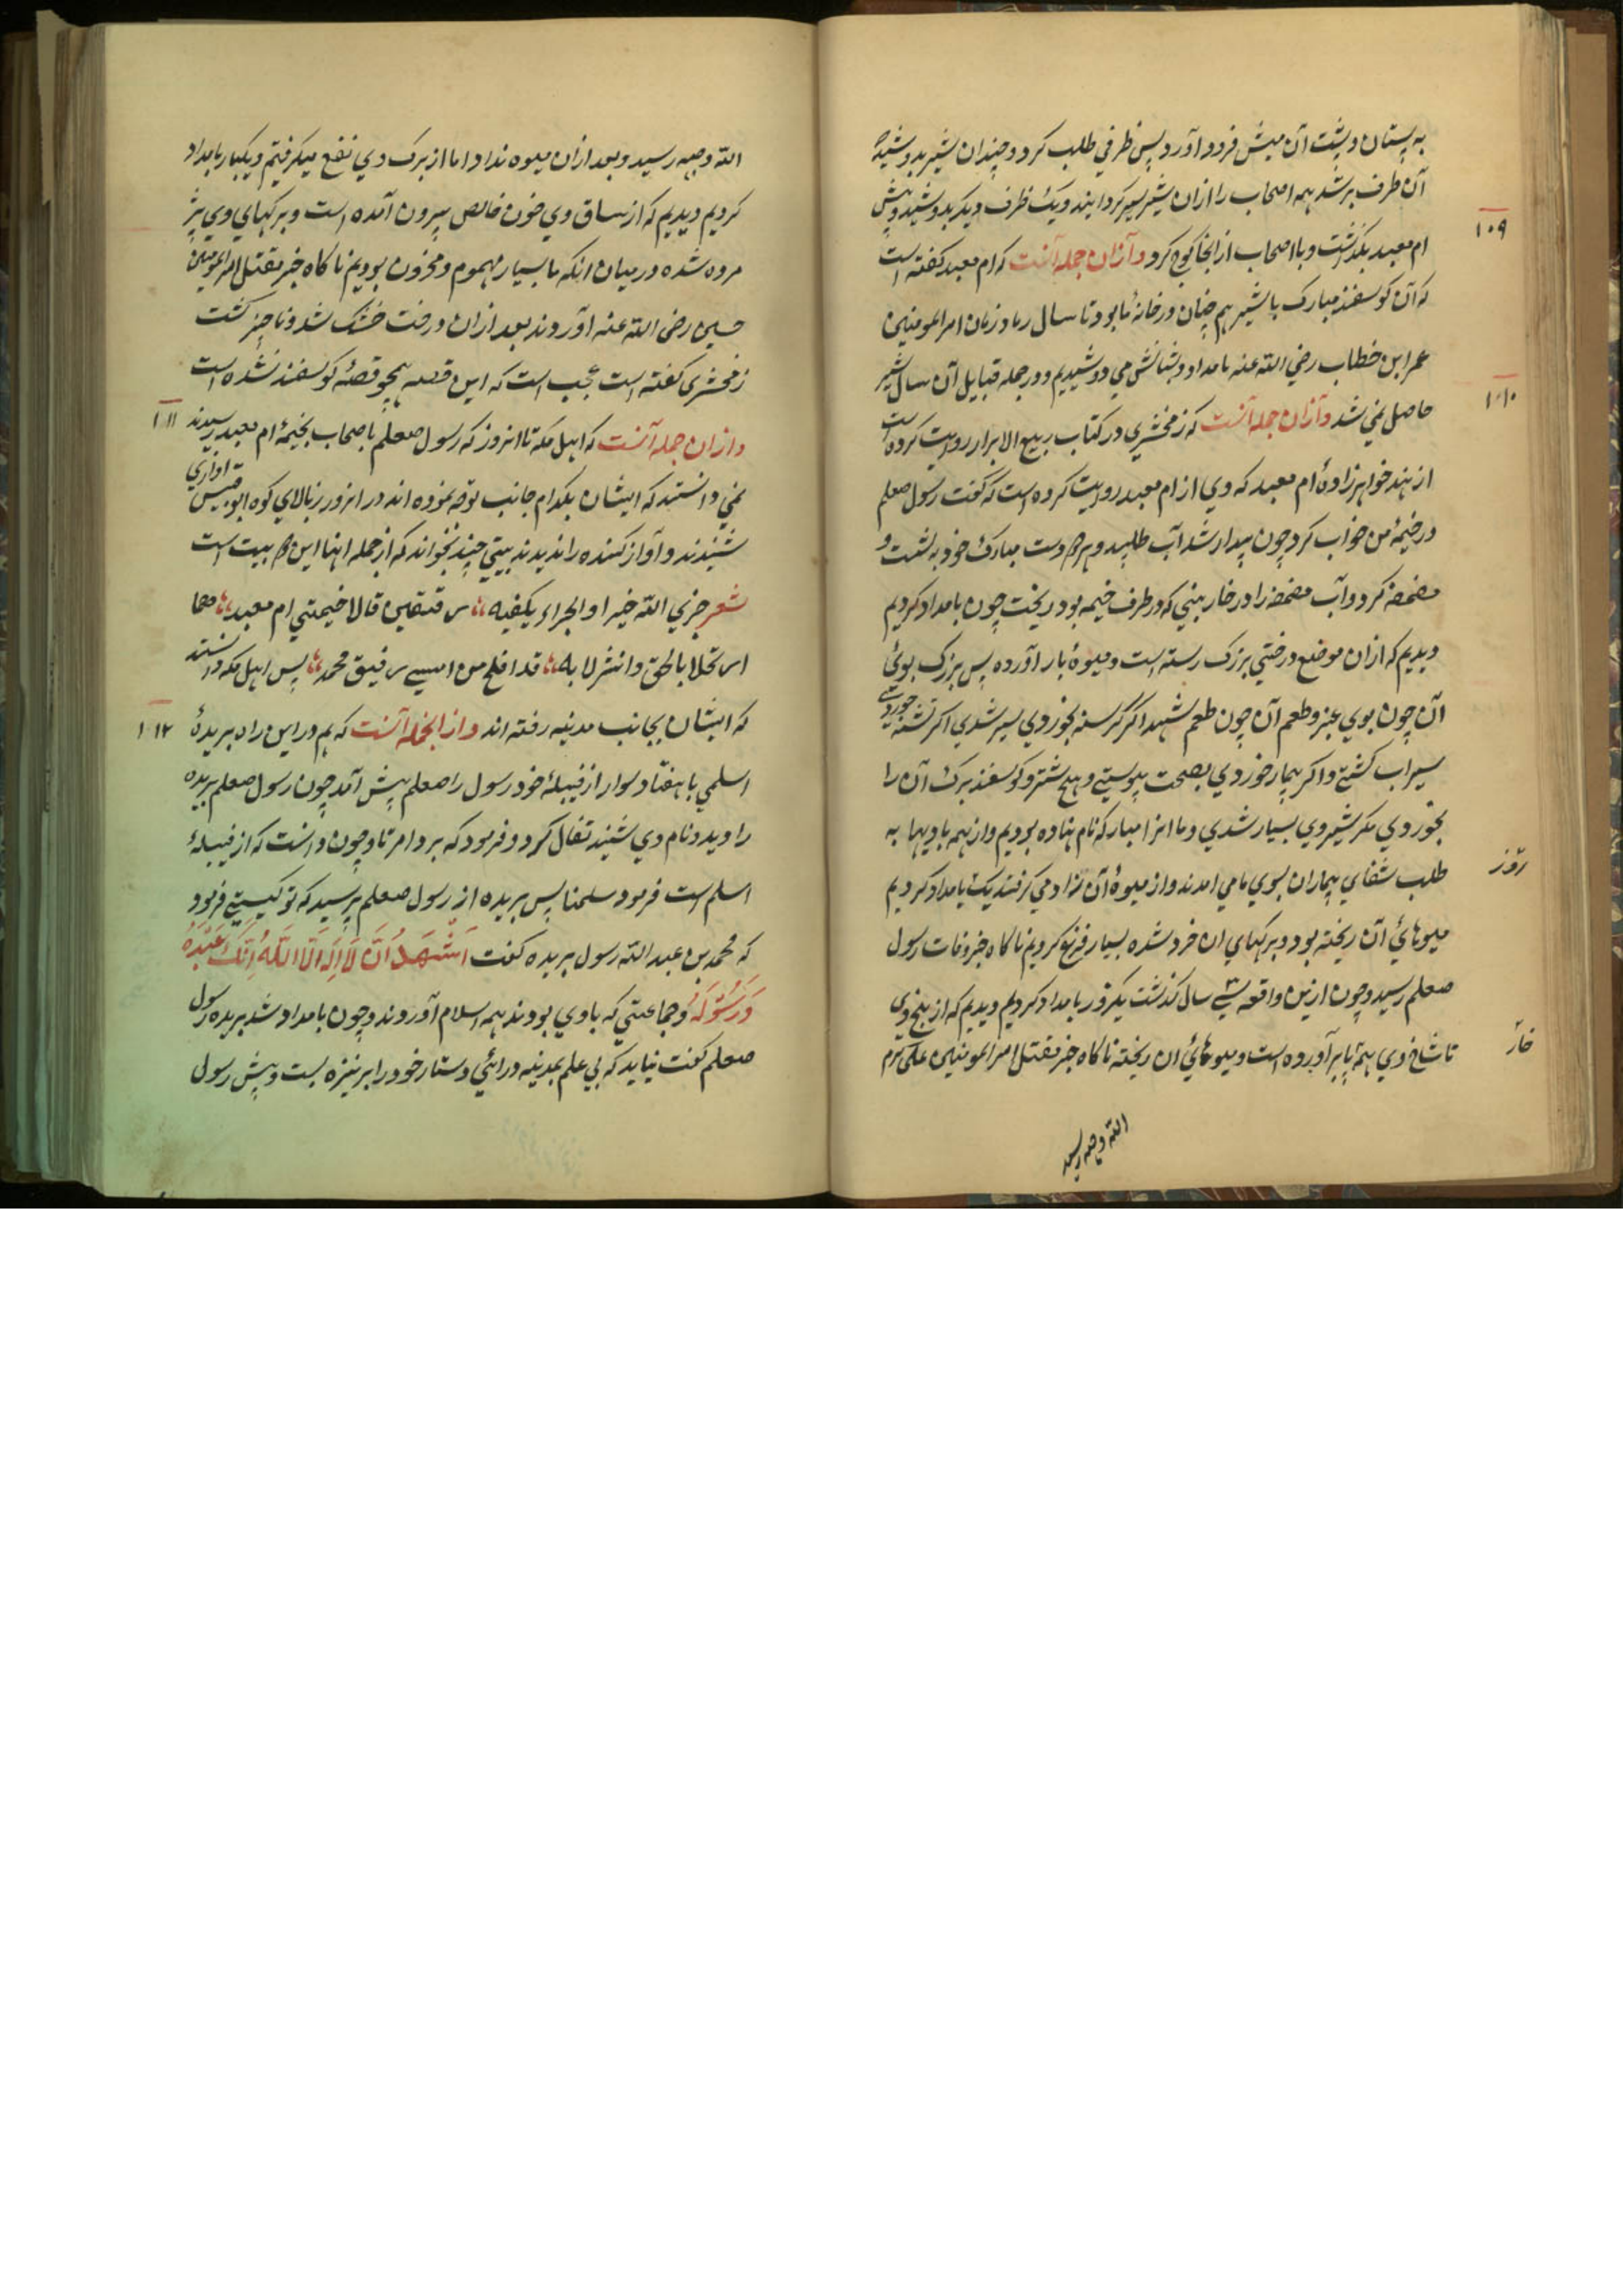 به پستان و پشت آن میش فرود آورد پس ظرفی طلب کرد و چندان شیر بدوشید که
آن ظرف پر شد همه اصحاب را ازان شیر سیر کردانیند و یک ظرف دیکر بدوشید و پیش
ام معبد بکذاشت و با اصحاب از انجا کوچ کرد و ازان جمله آنست که ام معبد کفته است
۱۰۹
که آن کوسفند مبارک با شیر هم چنان در خانهٔ ما بود تا سال رماد زمان امیرالمومنین
عمر ابن خطاب رضی الله عنه بامداد و شبانکش می دوشیدیم و در جمله قبایل آن سال شیر
حاصل نمی شد و ازان جمله آنست که زمخشری در کتاب ربیع الابرار روایت کرده است
۱۱۰
از هند خواهرزادهٔ ام معبد که وی از ام معبد روایت کرده است که کفت رسول صعلم
در خیمهٔ من خواب کرد چون بیدار شد آب طلبید و هر دو دست مبارک خود به شست و
مضمضه کرد و آب مضمضه را در خار بنی که در طرف خیمه بود ریخت چون بامداد کردیم
دیدیم که ازان موضع درختی بزرک رسته است و میوهٔ بار آورده بس بزرک بوئی
آن چون بوی عنبر و طعم آن چون طعم شهد اکر کرسنه بخوردی سیر شدی اکر تشنه خوردی
سیراب کشتی و اکر بیمار خوردی بصحت پیوستی و هیچ شتر و کوسفند برک آن را
بخوردی مکر شیر وی بسیار شدی و ما انرا مبارکه نام نهاده بودیم و از همه بادیها به
طلب شفای بیماران بسوی ما می امدند و از میوهٔ آن زاد می کرفتند یک بامداد کردیم
روز
میوهائی آن ریخته بود و برکهای ان خرد شده بسیار فزع کردیم ناکاه خبر وفات رسول
صعلم رسید و چون ازین واقعه سی سال کذشت یکروز بامداد کردیم دیدیم که از بیخ وی
تا شاخ وی همه تا بر آورده است و میوهائی ان ریخته ناکاه خبر مقتل امیرالمومنین علی کرم
خار
الله وجهه رسید
الله وجهه رسید و بعد ازان میوه نداد اما از برک وی نفع میکرفتیم و یکبار بامداد
کردیم دیدیم که از ساق وی خون خالص بیرون آمده است و برکهای وی پژ
مرده شده در میان انکه ما بسیار مهموم و محزون بودیم ناکاه خبر مقتل امیرالمومنین
حسین رضی الله عنه آوردند بعد ازان درخت خشک شد و ناچیز کشت
زمخشری کفته است عجب است که این قصه همچو قصهٔ کوسفند نشده است
و ازان جمله آنست که اهل مکه تا انروز که رسول صعلم با صحاب بخیمهٔ ام معبد رسیدند
۱۱۱
نمی دانستند که ایشان بکدام جانب توجه نموده اند در انروز از بالای کوه ابو قبیس اوازی
شنیدند و آواز کننده را ندیدند بیتی چند بخواند که از جمله انها این دو بیت است
شعر جزی الله خیرا والجزاء یکفیه رفیقین قالا خیمتی ام معبد هما
ارتحلا بالحق وانتزلا به قد افلح من امسی رفیق محمد پس اهل مکه دانستند
که ایشان بجانب مدینه رفته اند و از انجمله آنست که هم در این راه بریدهٔ
۱۱۲
اسلمی با هفتاد سوار از قبیلهٔ خود رسول را صعلم پیش آمد چون رسول صعلم بریده
را دید و نام وی شنید تفال کرد و فرمود که برد امرنا و چون دانست که از قبیلهٔ
اسلم است فرمود سلمنا پس بریده از رسول صعلم پرسید که تو کیستی فرمود
که محمد بن عبد الله رسول بریده کفت اَشْهَدُ اَنْ لَا اِلٰهَ اِلَّا اللهُ اِنَّکَ عَبْدُهُ
وَرَسُوْلُهُ و جماعتی که با وی بودند همه اسلام آوردند و چون بامداد شد بریده رسول
صعلم کفت نباید که بی علم بمدینه در ائی دستار خود را بر نیزه بست و پیش رسول